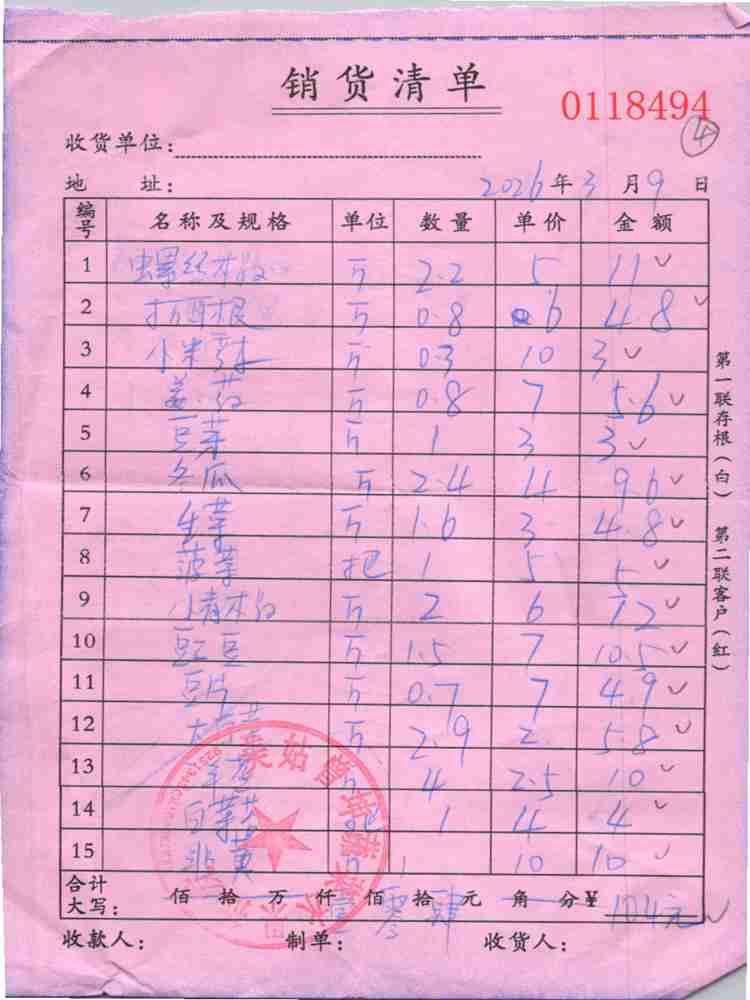 销货清单
0118494
④
收货单位:
地 址: 2026年3月9日
编号 名称及规格 单位 数量 单价 金额
1 螺丝椒 斤 2.2 5 11
2 折耳根 斤 0.8 6 4.8
3 小米 斤 0.3 10 3
4 姜 斤 0.8 7 5.6
5 豆芽 斤 1 3 3
6 冬瓜 斤 2.4 4 9.6
7 生芽 斤 1.6 3 4.8
8 菠 把 1 5 5
9 小青 斤 2 6 12
10 豇豆 斤 1.5 7 10.5
11 豆片 斤 0.7 7 4.9
12 大 斤 2.9 2 5.8
13 4 2.5 10
14 白 1 4 4
15 韭黄 1 10 10
合计大写: 佰 拾 万 仟 壹佰零拾肆元 角 分¥ 104元
收款人: 制单: 收货人:
第一联存根(白) 第二联客户(红)